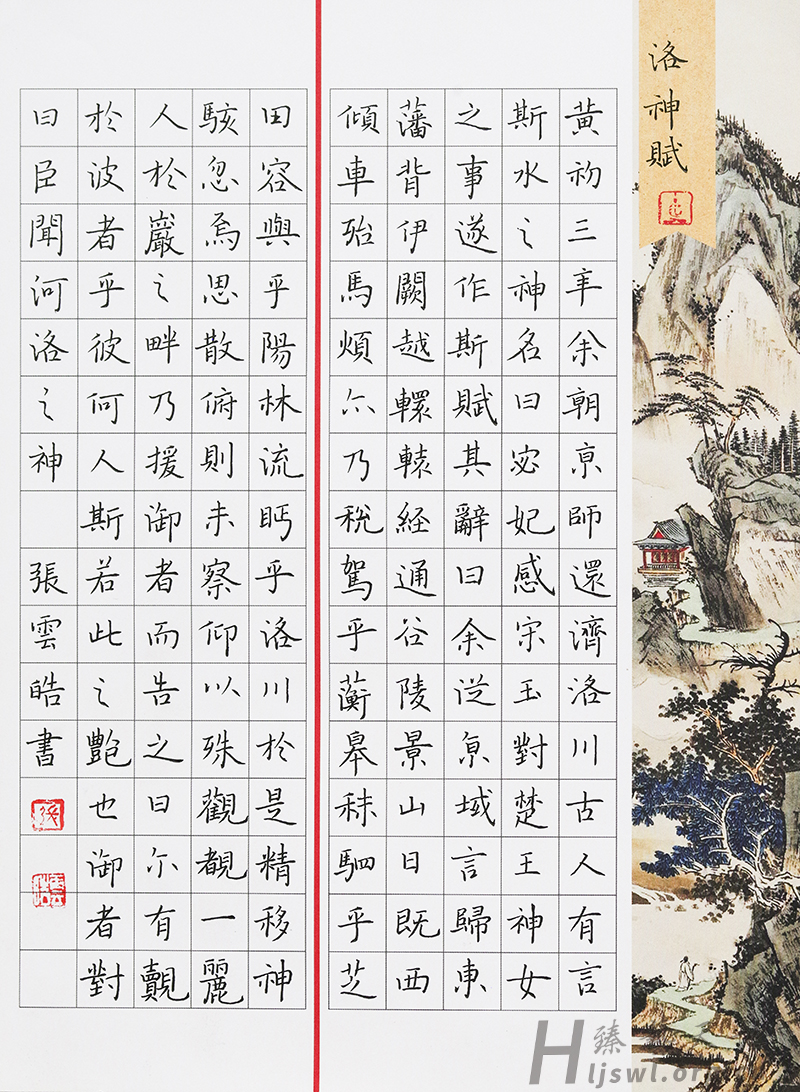 洛神賦
黃初三年余朝京師還濟洛川古人有言
斯水之神名曰宓妃感宋玉對楚王神女
之事遂作斯賦其辭曰余從京域言歸東
藩背伊闕越轘轅経通谷陵景山日既西
傾車殆馬煩尒乃稅駕乎蘅皋秣駟乎芝
田容與乎陽林流眄乎洛川於是精移神
駭忽焉思散俯則未察仰以殊觀覩一麗
人於巖之畔乃援御者而告之曰尒有覿
於波者乎彼何人斯若此之艷也御者對
曰臣聞河洛之神 張雲皓書